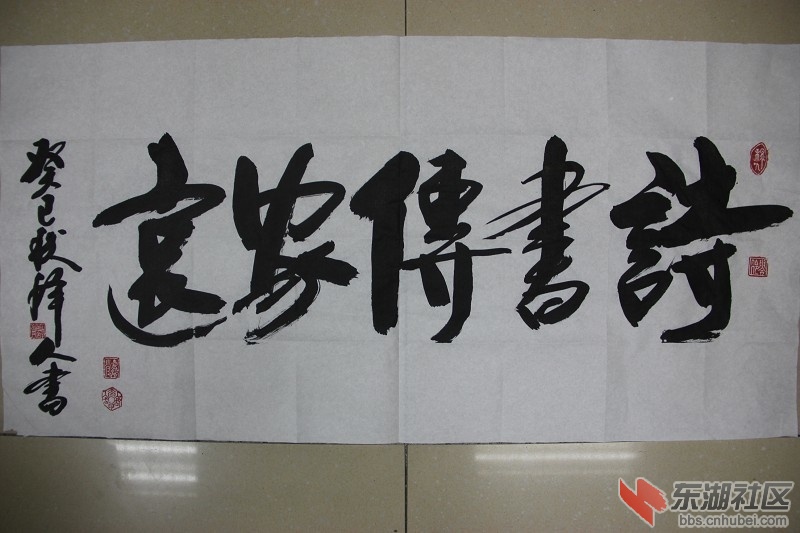 詩書傳家遠
癸巳秋
人書
东湖社区
bbs.cnhubei.com